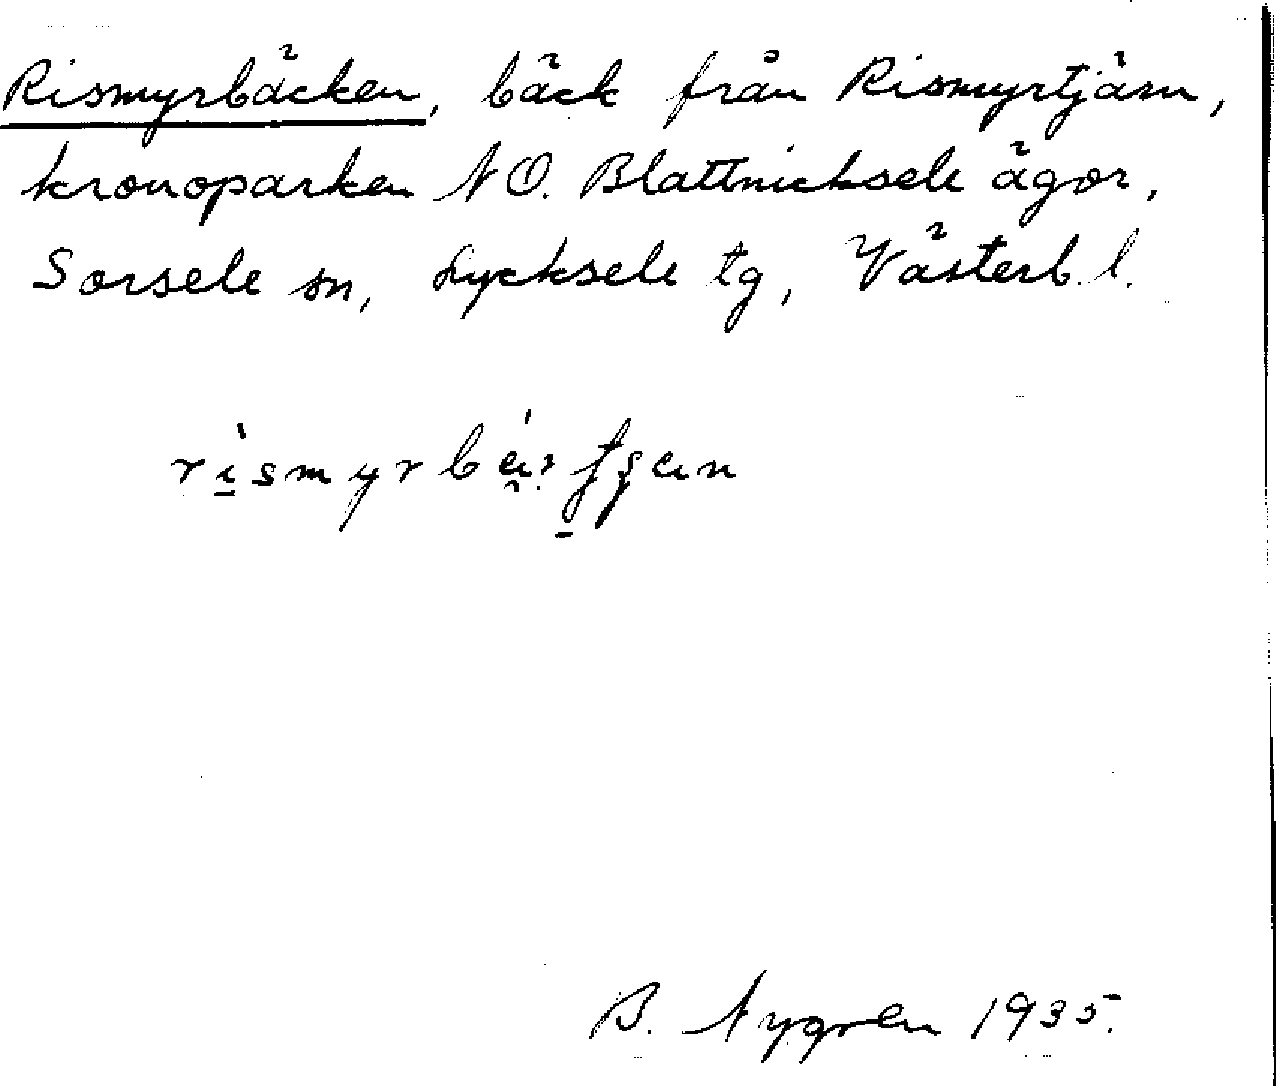 Rismyrbäcken, bäck från Rismyrtjärn,
kronoparken NO. Blattnicksele ägor,
Sorsele sn, Lycksele tg, Västerb. l.
B. Nygren 1935.